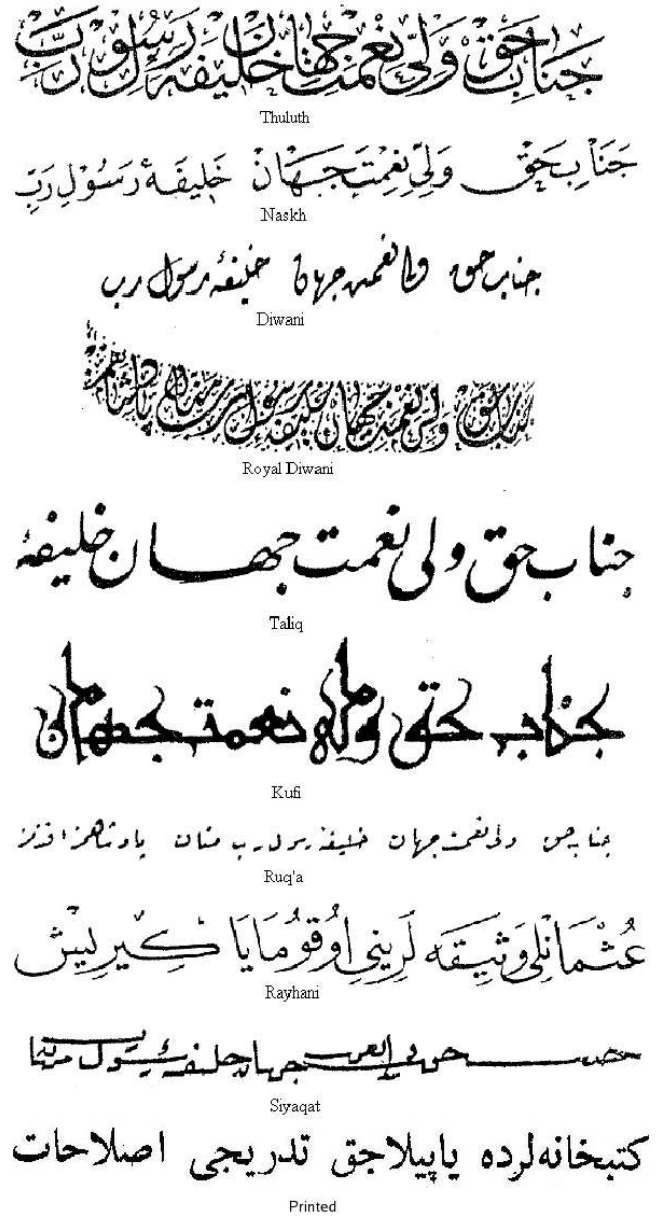 جناب حق ولي نعمت جهان خليفهٔ رسول رب
Thuluth
جَنَابِ حَقْ وَلِيِّ نِعْمَتِ جَهَانْ خَلِيفَهٔ رَسُولِ رَبِّ
Naskh
جناب حق ولی نعمت جهان خلیفهٔ رسول رب
Diwani
جناب حق ولی نعمت جهان خلیفهٔ رسول رب
Royal Diwani
جناب حق ولی نعمت جهان خلیفهٔ
Taliq
جناب حق ولی نعمت جهان
Kufi
جناب حق ولی نعمت جهان خلیفهٔ رسول رب منان پادشاهمز افندمز
Ruq'a
عُثْمَانْلِی وَثِیقَه لَرِینِی اُوقُومَایَا کِیرِیش
Rayhani
جهان خلیفهٔ رسول
Siyaqat
كتبخانه‌لرده ياپيلاجق تدريجی اصلاحات
Printed